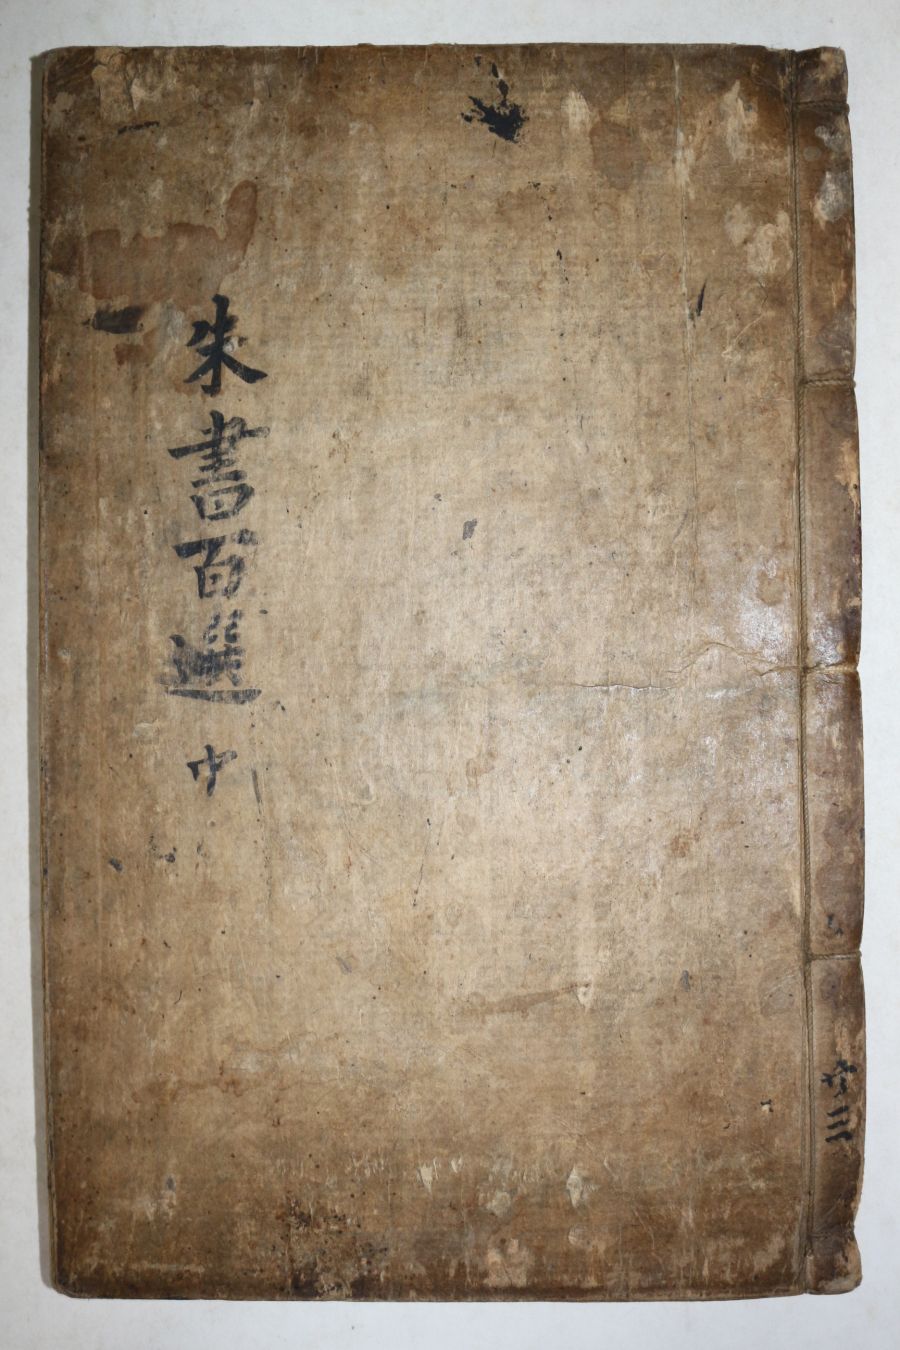 朱書百選 中
共三